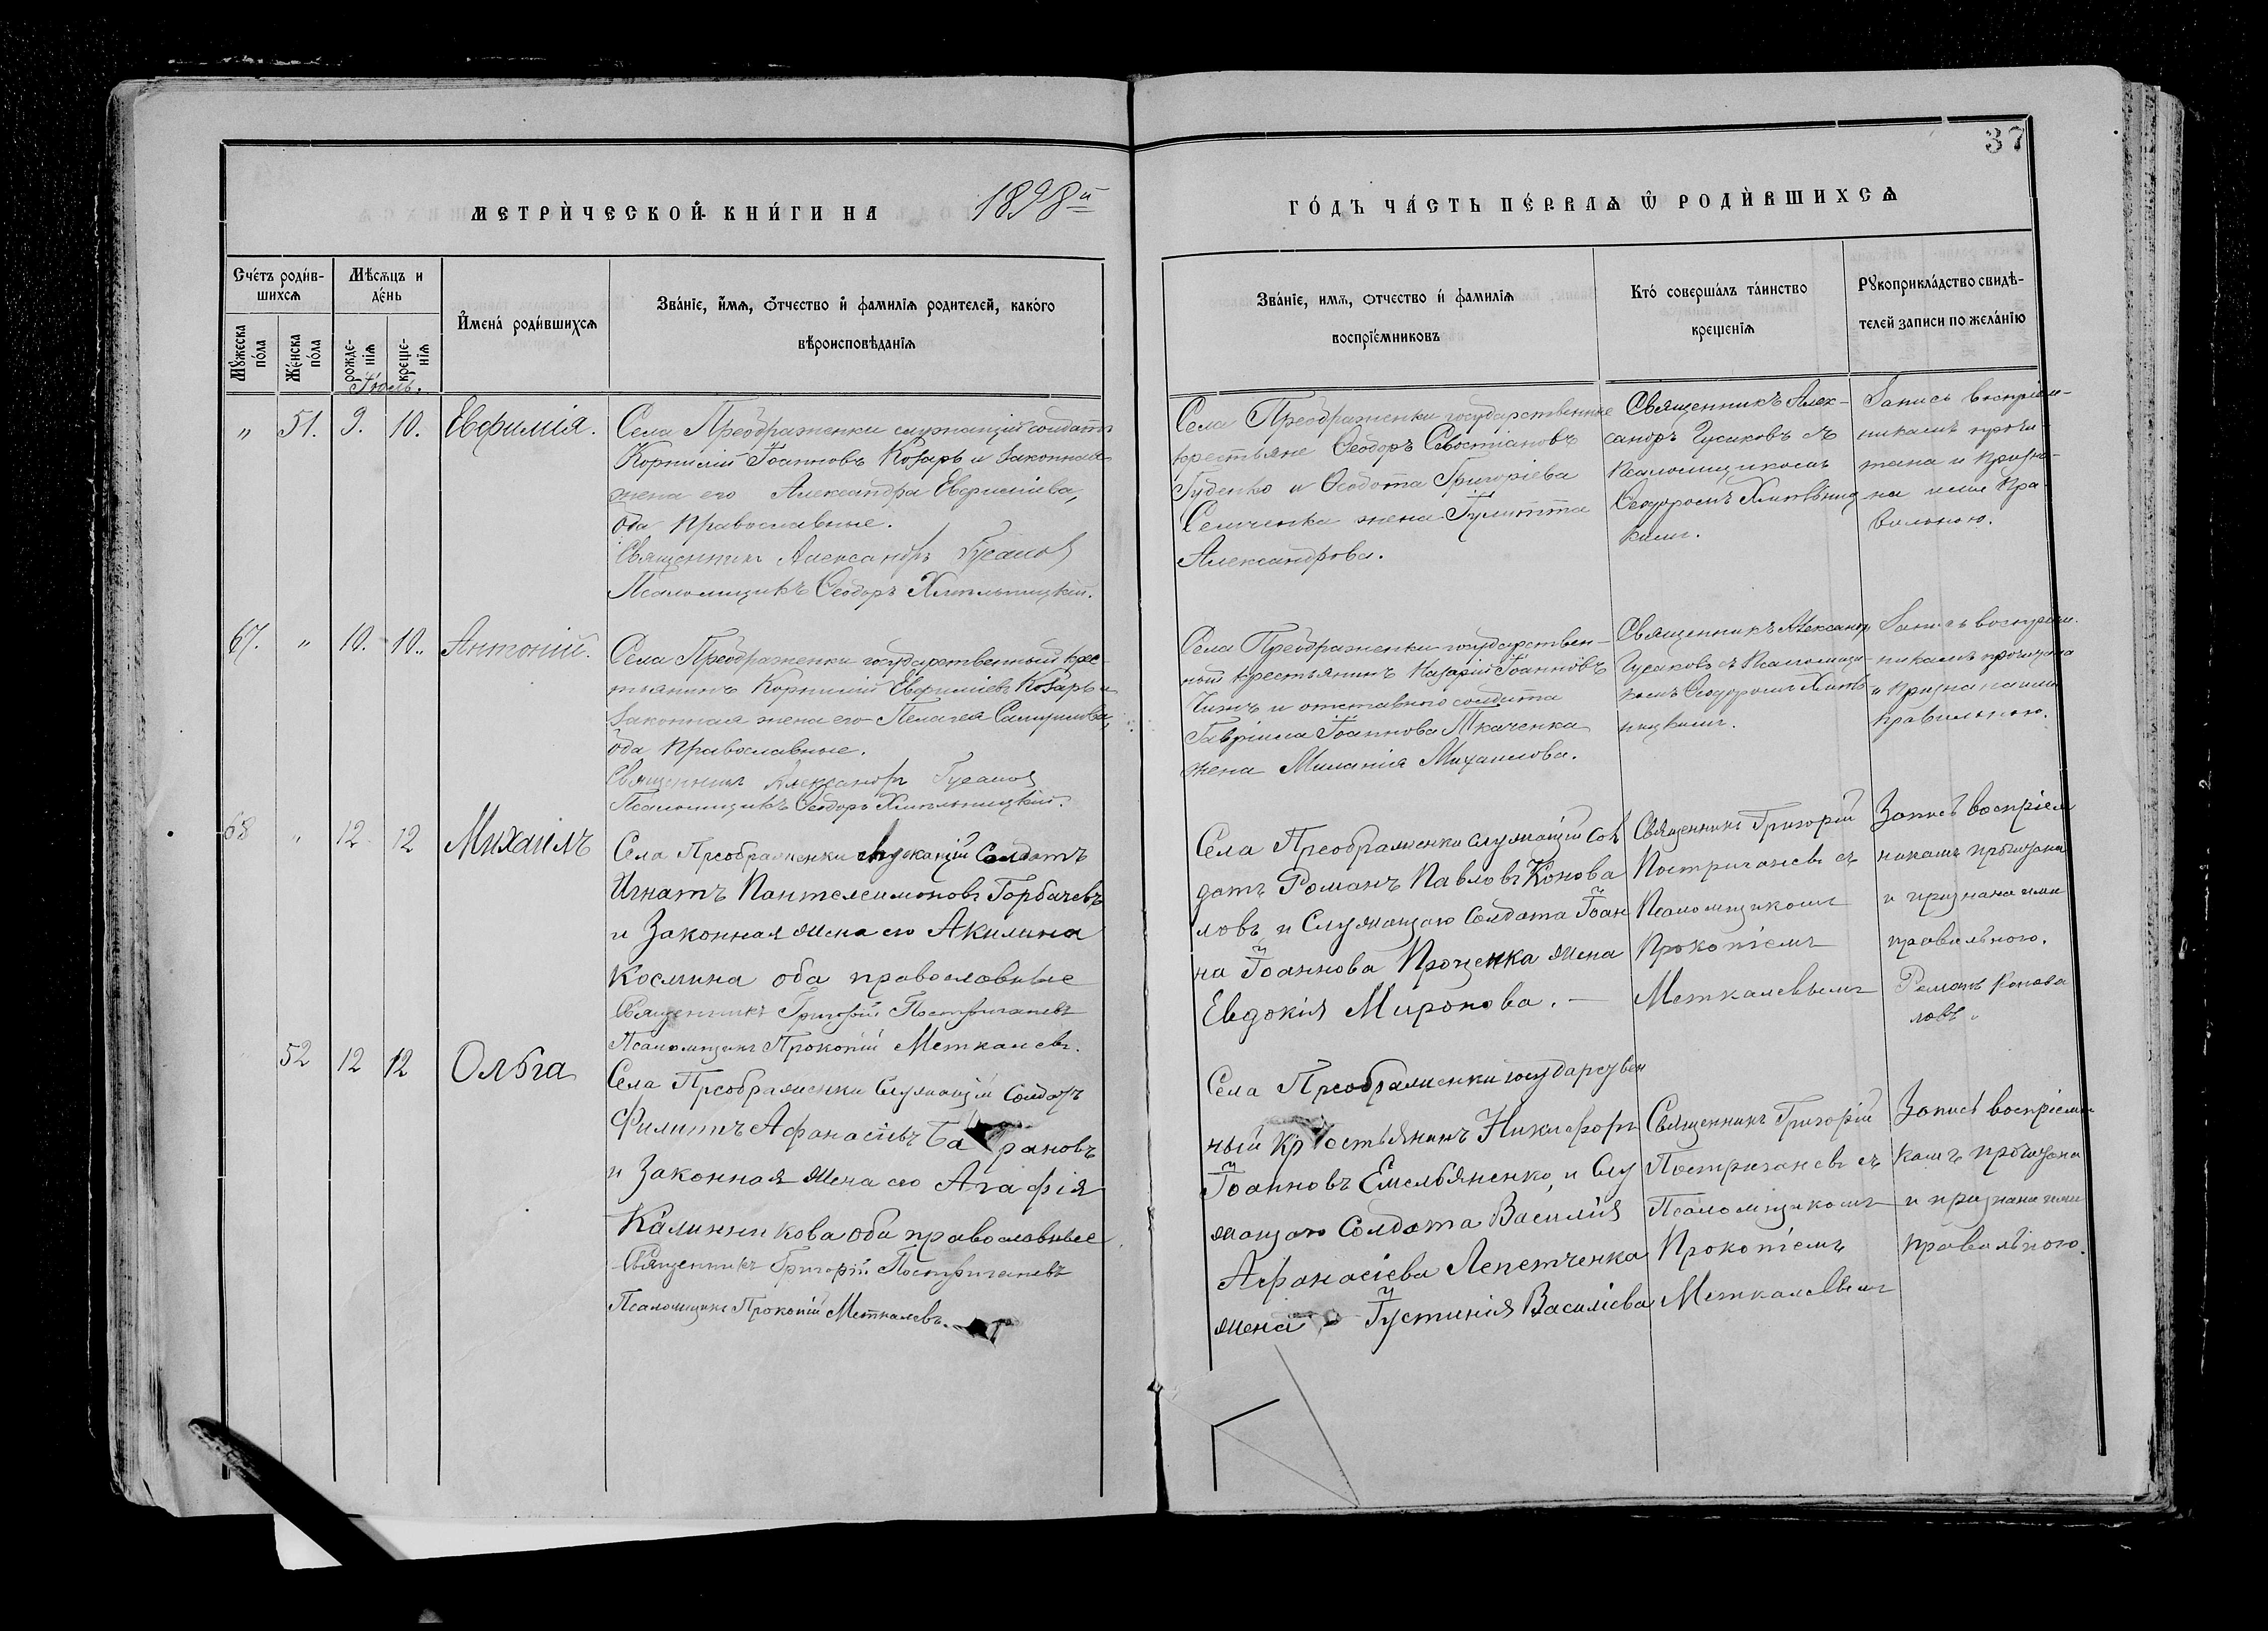 37
МЕТРИЧЕСКОЙ КНИГИ НА 1898й
ГОДЪ ЧАСТЬ ПЕРВАЯ Ѿ РОДИВШИХСЯ
Счетъ родив-
шихся
Мѣсяцъ и
день
Имена родившихся
Званіе, имя, отчество и фамилія родителей, какого
вѣроисповѣданія
Мужеска
пола
Женска
пола
рожде-
нія
креще-
нія
Званіе, имя, отчество и фамилія
воспріемниковъ
Кто совершалъ таинство
крещенія
Рукоприкладство свидѣ-
телей записи по желанію
Іюль.
" 51. 9. 10. Евфимія.
Села Преображенки служащій солдатъ
Корнилій Іоанновъ Козарь и законная
жена его Александра Евфиміева,
оба православные.
Священникъ Александръ Гусаковъ
Псаломщикъ Ѳеодоръ Хмѣльницкій.
Села Преображенки государственные
крестьяне Ѳеодоръ Севостіановъ
Губенко и Ѳеодота Григоріева
Семченка жена Іулитта
Александрова.
Священникъ Алек-
сандръ Гусаковъ съ
псаломщикомъ
Ѳеодоромъ Хмѣльниц
кимъ.
Запись воспріем-
никамъ прочи
тана и призна-
на ими пра
вильною.
67. " 10. 10. Антоній.
Села Преображенки государственный крес-
тьянинъ Корнилій Евфиміевъ Козарь и
законная жена его Пелагея Самуилова,
оба православные.
Священникъ Александръ Гусаковъ
Псаломщикъ Ѳеодоръ Хмѣльницкій.
Села Преображенки государствен-
ный крестьянинъ Назарій Іоанновъ
Чижъ и отставного солдата
Гавріила Іоаннова Ткаченка
жена Миланія Михаилова.
Священникъ Александръ
Гусаковъ съ Псаломщи-
комъ Ѳеодоромъ Хмѣль
ницкимъ.
Запись воспріем-
никамъ прочитана
и признана ими
правильною.
68 " 12 12 Михаилъ
Села Преображенки служащій Солдатъ
Игнатъ Пантелеимоновъ Горбачевъ
и Законная жена его Акилина
Космина оба православные
Священникъ Григорій Постригачевъ
Псаломщикъ Прокопій Меткалевъ.
Села Преображенки служащій Сол
датъ Романъ Павловъ Конова
ловъ и Служащаго Солдата Іоан
на Іоаннова Проценка жена
Евдокія Миронова. —
Священникъ Григорій
Постригачевъ съ
Псаломщикомъ
Прокопіемъ
Меткалевымъ
Запись воспріем
никамъ прочитана
и признана ими
правильною.
Романъ Конова
ловъ
52 12 12 Ольга
Села Преображенки Служащій Солдатъ
Филиппъ Афанасіевъ Ба рановъ
и Законная жена его Агафія
Калинникова оба православные
Священникъ Григорій Постригачевъ
Псаломщикъ Прокопій Меткалевъ.
Села Преображенки государствен
ный крестьянинъ Никифоръ
Іоанновъ Емельяненко, и Слу
жащаго Солдата Василія
Афанасіева Лепетченка
жена Іустинія Василіева
Священникъ Григорій
Постригачевъ съ
Псаломщикомъ
Прокопіемъ
Меткалевымъ
Запись воспріемни
камъ прочитана
и признана ими
правильною.